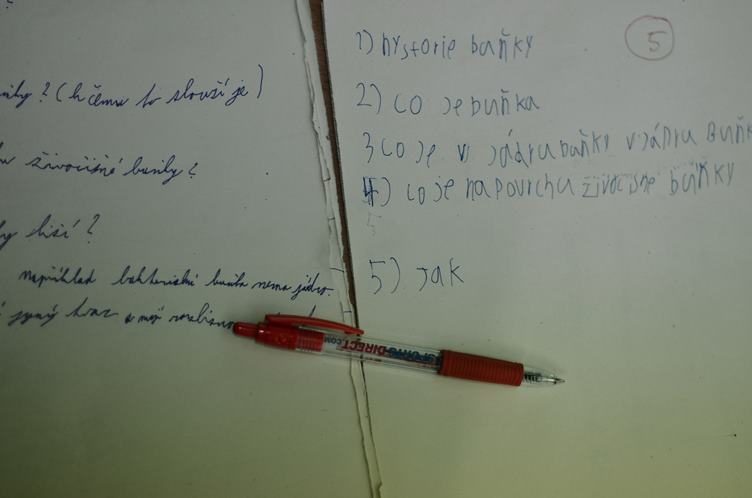 ? (k čemu to slouží je)
živočišné buňky?
liší?
například bakteriální buňka nema jádro.
jyný tvar a
1) hystorie buňky
5
2) co je buňka
3 co je v jádru buňky v jádru Buňk
4) co je na povrchu živočišne buňky
5
5) jak
SPORTSDIRECT.COM